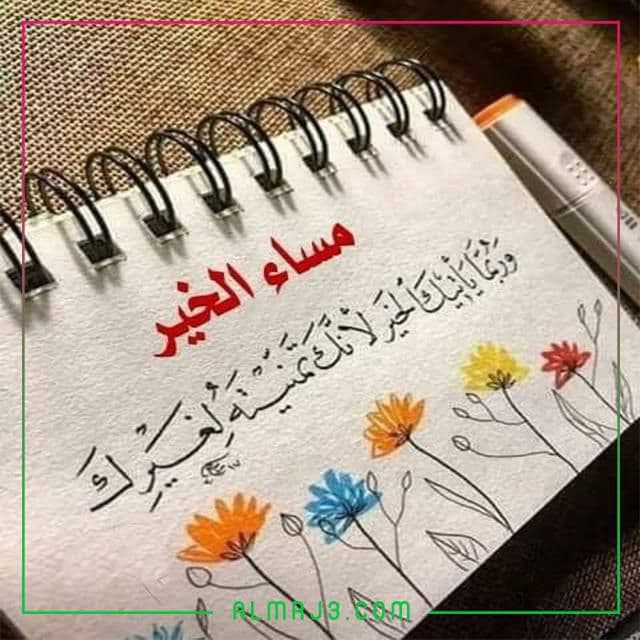 مساء الخير
وَرُبَّمَا يَأْتِيكَ الخَيرَ لأَنَّكَ تَمَنَّيْتَهُ لِغَيْرِكَ
ALMRJ3.COM